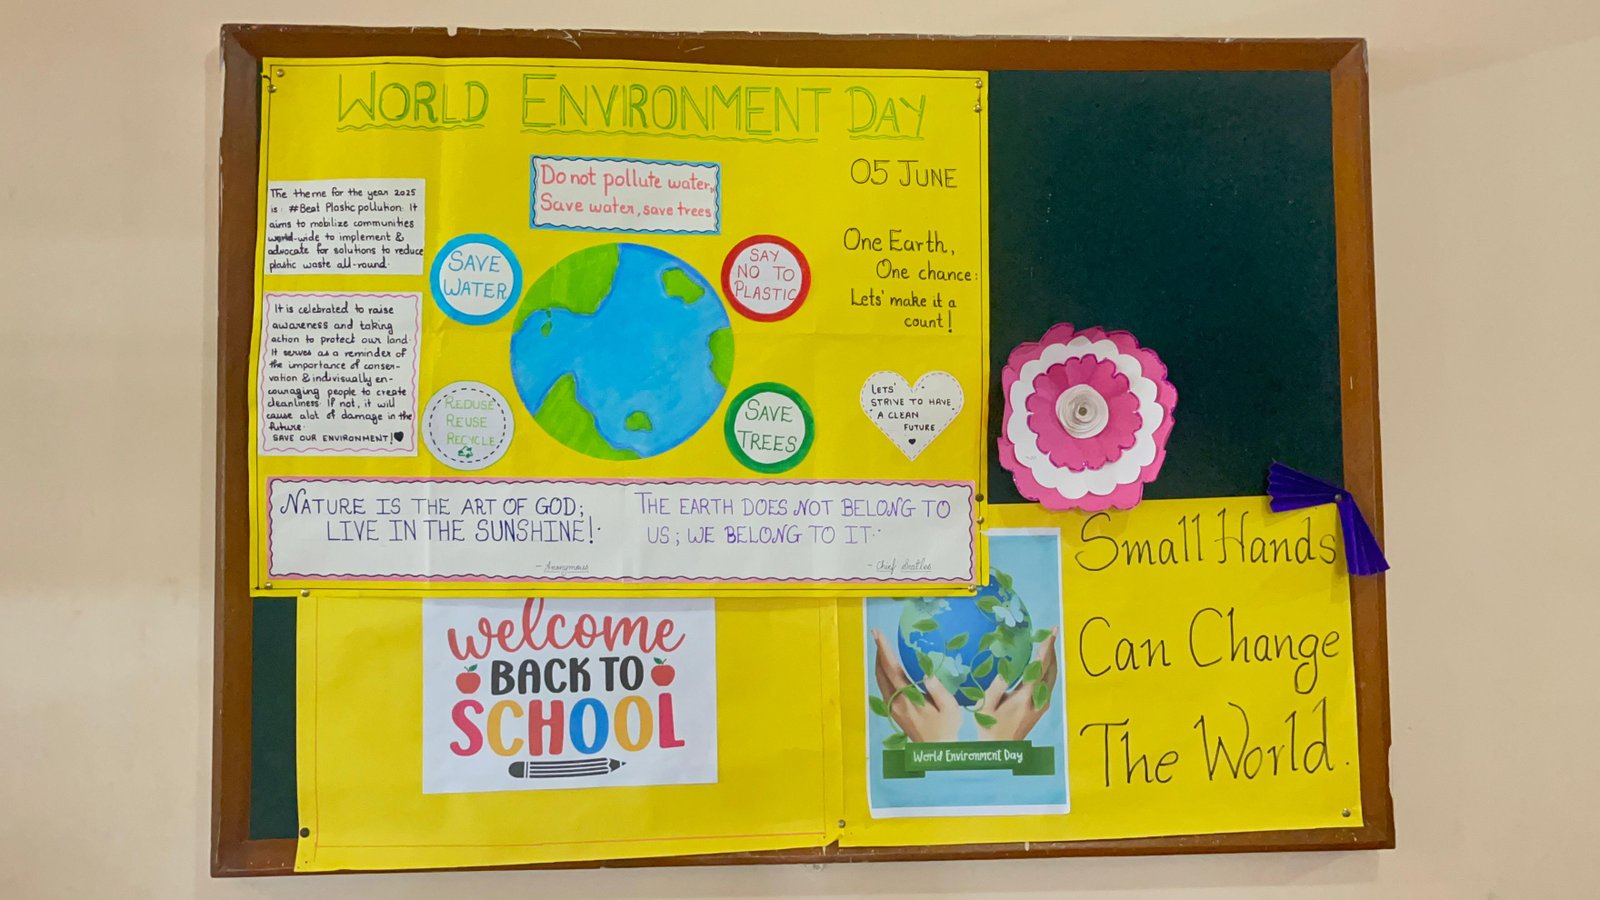 WORLD ENVIRONMENT DAY
05 JUNE
Do not pollute water,
Save water, save trees
The theme for the year 2025
is : #Beat Plastic pollution. It
aims to mobilize communities
world-wide to implement &
advocate for solutions to reduce
plastic waste all-round.
It is celebrated to raise
awareness and taking
action to protect our land.
It serves as a reminder of
the importance of conser-
vation & indivisually en-
couraging people to create
cleanliness. If not, it will
cause alot of damage in the
future.
SAVE OUR ENVIRONMENT!
SAVE
WATER
SAY
NO TO
PLASTIC
REDUSE
REUSE
RECYCLE
SAVE
TREES
One Earth,
One chance:
Lets' make it a
count!
LETS'
STRIVE TO HAVE
A CLEAN
FUTURE
NATURE IS THE ART OF GOD;
LIVE IN THE SUNSHINE!
- Anonymous
THE EARTH DOES NOT BELONG TO
US; WE BELONG TO IT.
- Chief Seatles
welcome
BACK TO
SCHOOL
World Environment Day
Small Hands
Can Change
The World.